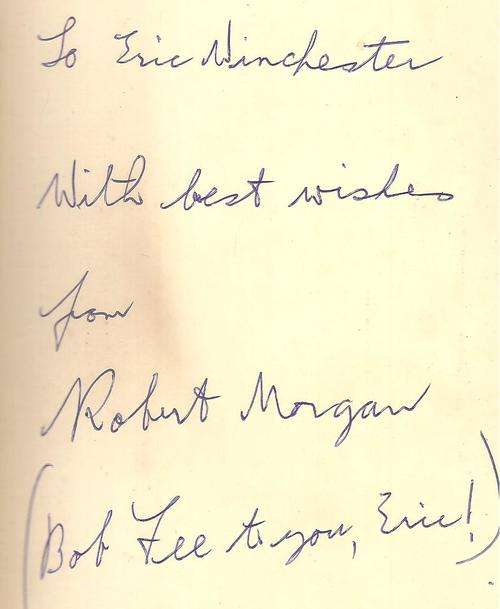 To Eric Winchester
With best wishes
from
Robert Morgan
(Bob Fee to you, Eric!)